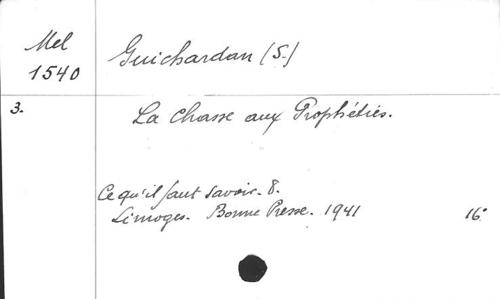 Mel
1540
Guichardan (S.)
3.
La Chasse aux Prophéties.
Ce qu'il faut savoir. 8.
Limoges. Bonne Presse. 1941
16°